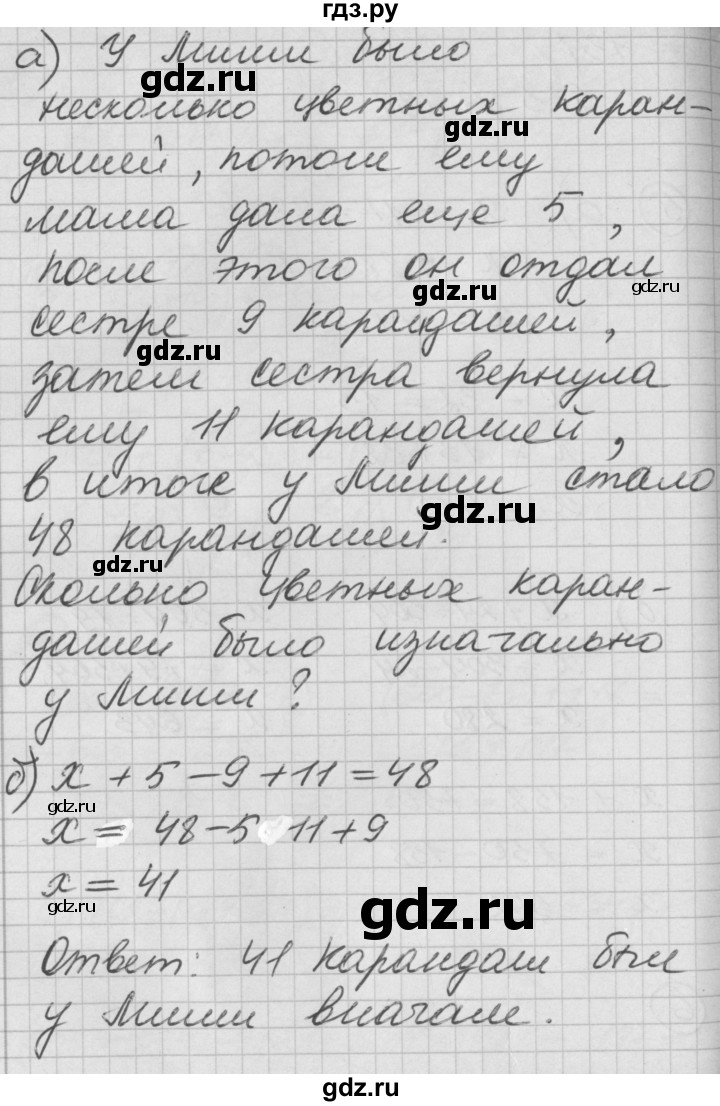 гдз.ру
а) У Миши было
несколько цветных каран-
дашей, потом ему
мама дала еще 5,
после этого он отдал
сестре 9 карандашей,
затем сестра вернула
ему 11 карандашей,
в итоге у Миши стало
48 карандашей.
Сколько цветных каран-
дашей было изначально
у Миши?
б) x + 5 - 9 + 11 = 48
x = 48 - 5 11 + 9
x = 41
Ответ: 41 карандаш был
у Миши вначале.
gdz.ru
gdz.ru
gdz.ru
gdz.ru
gdz.ru
gdz.ru
gdz.ru
gdz.ru
gdz.ru
gdz.ru
gdz.ru
gdz.ru